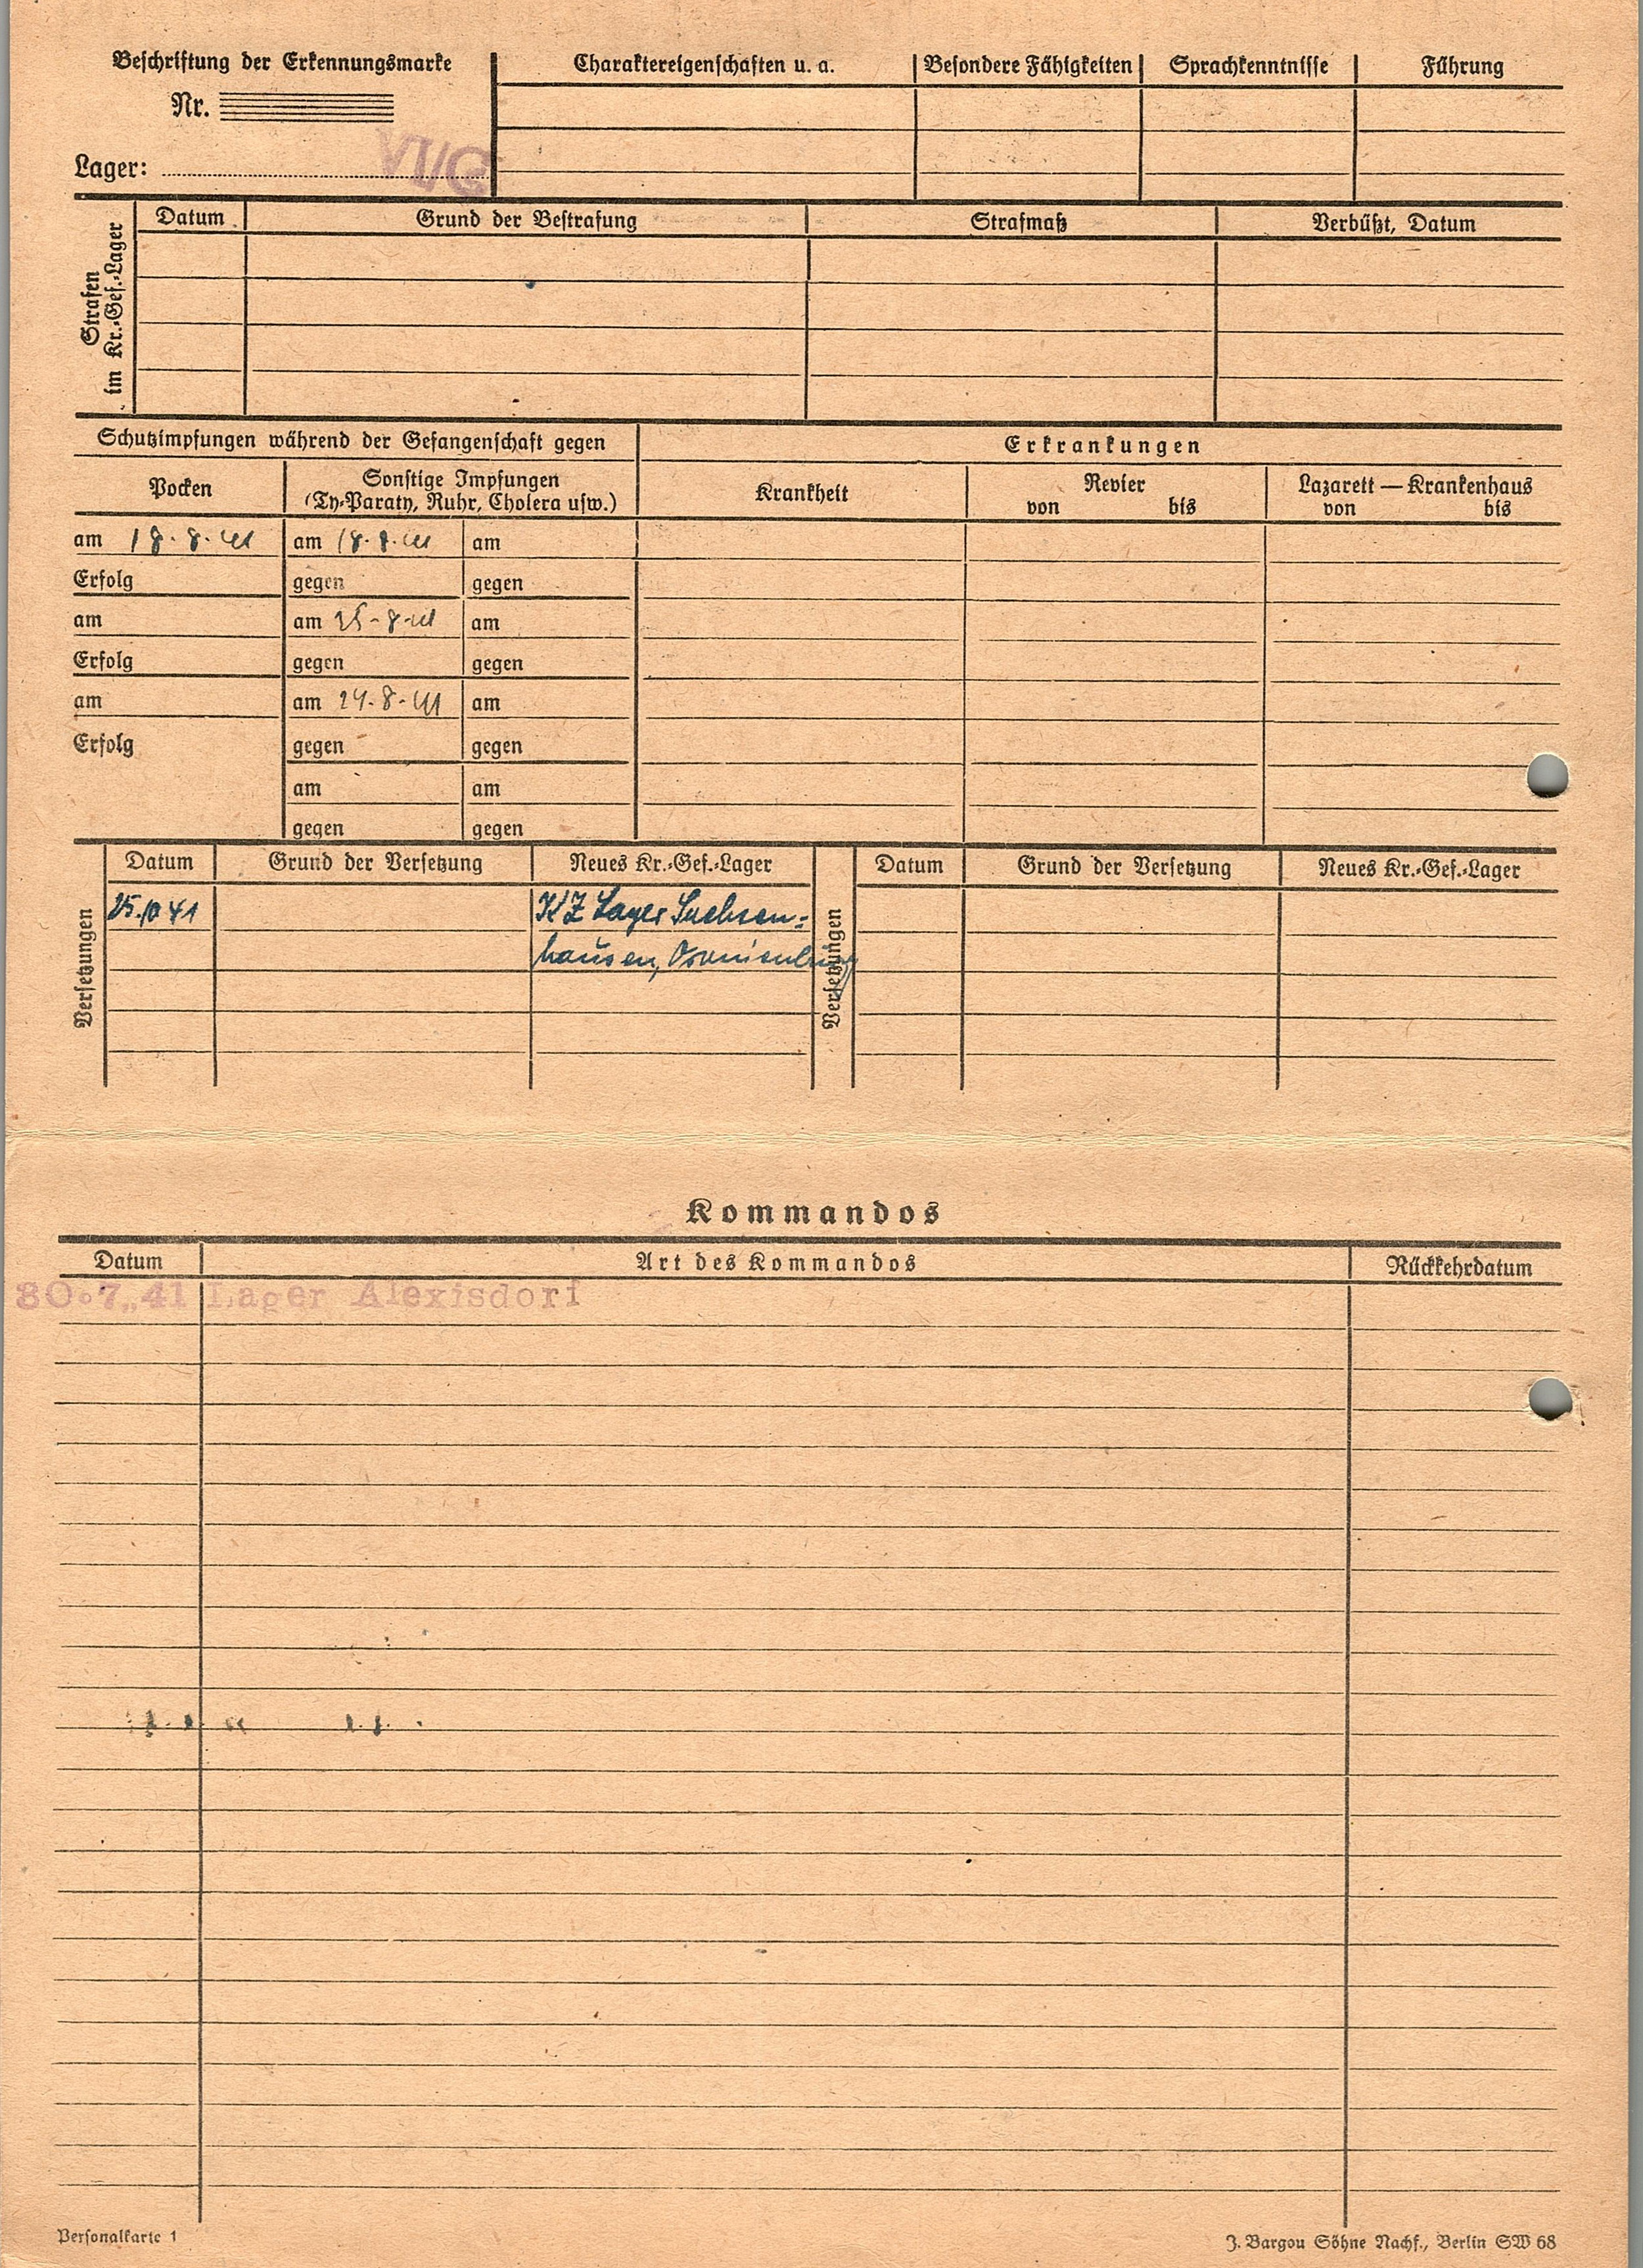 Beschriftung der Erkennungsmarke
Nr.
Lager: VI/C
Charaktereigenschaften u. a. Besondere Fähigkeiten Sprachkenntnisse Führung
Strafen
im Kr.-Gef.-Lager
Datum Grund der Bestrafung Strafmaß Verbüßt, Datum
Schutzimpfungen während der Gefangenschaft gegen
Erkrankungen
Pocken
Sonstige Impfungen
(Ty-Paraty, Ruhr, Cholera usw.)
Krankheit
Revier
von bis
Lazarett — Krankenhaus
von bis
am 18.8.41 am 18.8.41 am
Erfolg gegen gegen
am am 25-8-41 am
Erfolg gegen gegen
am am 24.8.41 am
Erfolg gegen gegen
am am
gegen gegen
Versetzungen
Datum Grund der Versetzung Neues Kr.-Gef.-Lager
25.10 41 KZ Lager Sachsen-
hausen, Oranienburg
Versetzungen
Datum Grund der Versetzung Neues Kr.-Gef.-Lager
Kommandos
Datum Art des Kommandos Rückkehrdatum
30.7.41 Lager Alexisdorf
Personalkarte 1
J. Bargou Söhne Nachf., Berlin SW 68